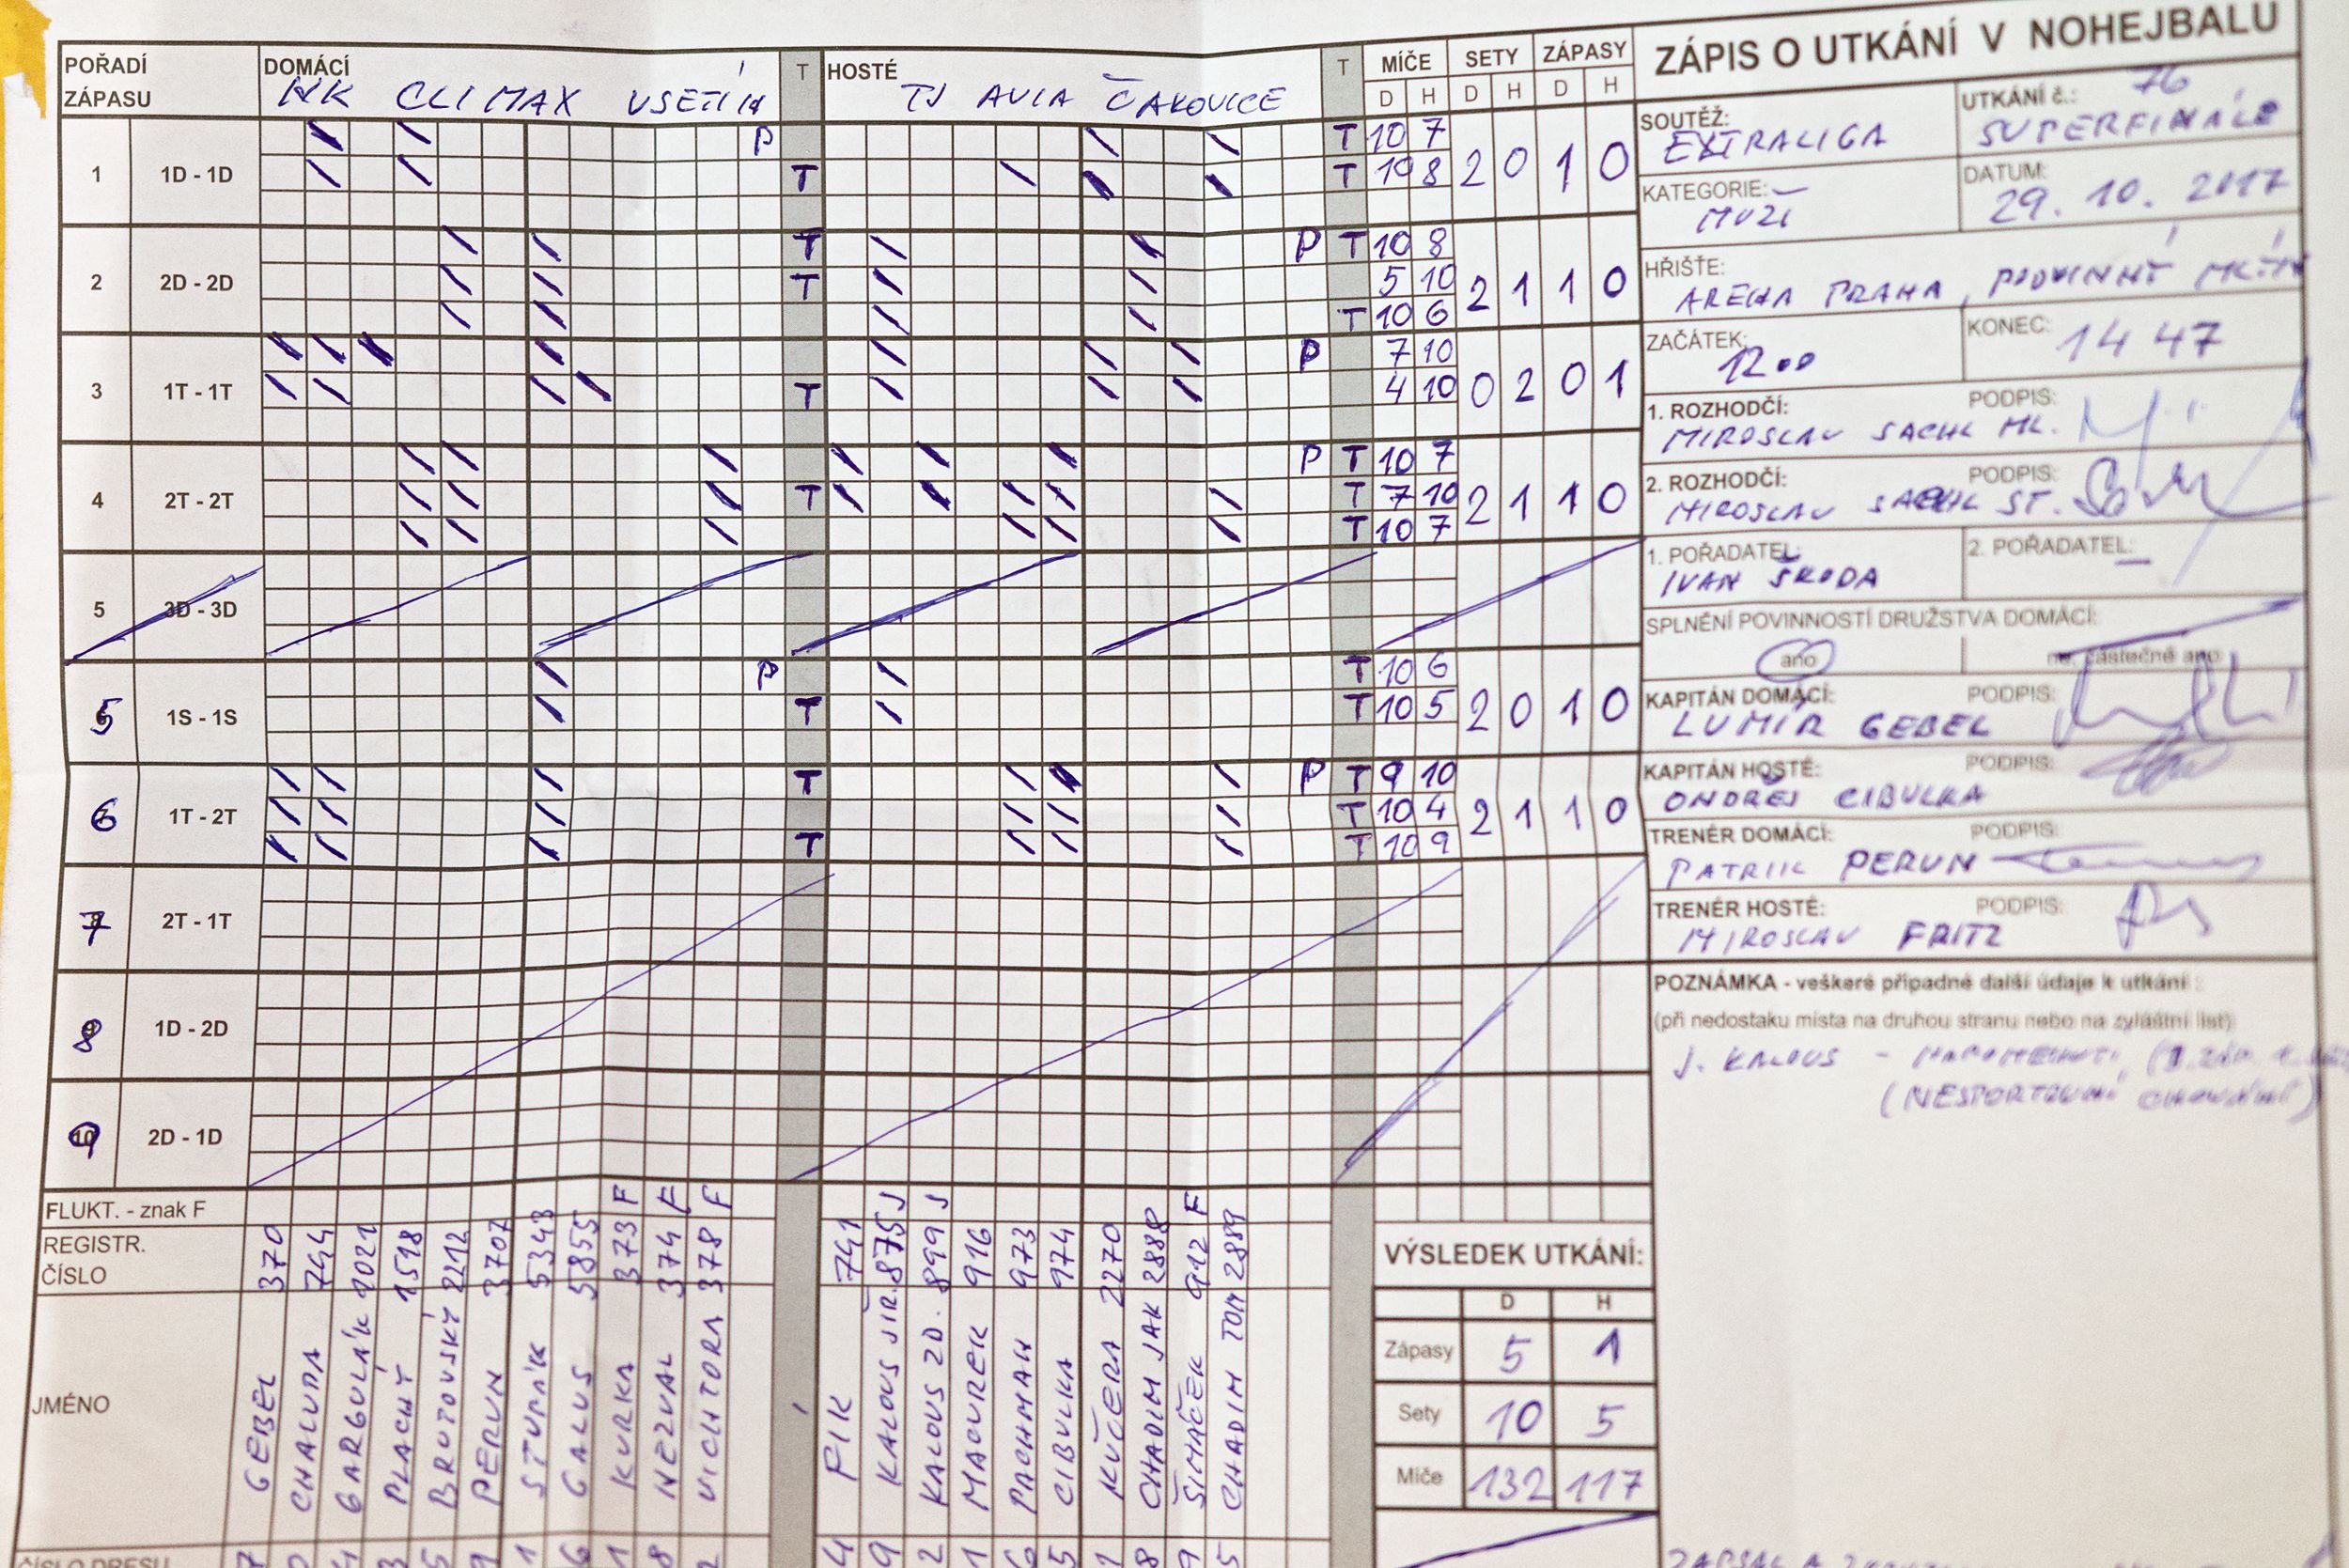 ZÁPIS O UTKÁNÍ V NOHEJBALU
POŘADÍ ZÁPASU
DOMÁCÍ
NK CLIMAX VSETÍN
T
HOSTÉ
TJ AVIA ČAKOVICE
T
MÍČE SETY ZÁPASY
D H D H D H
1 1D - 1D P T 10 7 2 0 1 0
T T 10 8
2 2D - 2D T P T 10 8 2 1 1 0
T 5 10
T 10 6
3 1T - 1T P 7 10 0 2 0 1
T 4 10
4 2T - 2T P T 10 7 2 1 1 0
T T 7 10
T 10 7
5 3D - 3D
5 1S - 1S P T 10 6 2 0 1 0
T T 10 5
6 1T - 2T T P T 9 10 2 1 1 0
T 10 4
T T 10 9
7 2T - 1T
8 1D - 2D
9 2D - 1D
FLUKT. - znak F
REGISTR. ČÍSLO
JMÉNO
GEBEL 370
CHALUPA 744
GARGULÁK 2021
PLACHÝ 1518
BRUTOVSKÝ 2212
PERUN 3707
STUPŇÍK 5343
GALUS 5855
KURKA 373 F
NEZVAL 374 F
VICHTORA 378 F
FIK 741
KALOUS JIR. 875 J
KALOUS ZD. 899 J
MAOUREK 916
PACHMAN 973
CIBULKA 974
KUČERA 2270
CHADIM JAK 2888
ŠIMÁČEK 912 F
CHADIM TOM 2889
ČÍSLO DRESU
SOUTĚŽ:
EXTRALIGA
UTKÁNÍ č.: 76
SUPERFINÁLE
KATEGORIE:
MUŽI
DATUM:
29. 10. 2017
HŘIŠTĚ:
ARENA PRAHA, PODVINNÝ MLÝN
ZAČÁTEK:
12 00
KONEC:
14 47
1. ROZHODČÍ: PODPIS:
MIROSLAV SACHL ML.
2. ROZHODČÍ: PODPIS:
MIROSLAV SACHL ST.
1. POŘADATEL:
IVAN ŠKODA
2. POŘADATEL: —
SPLNĚNÍ POVINNOSTÍ DRUŽSTVA DOMÁCÍ:
ano
ne, částečně ano
KAPITÁN DOMÁCÍ: PODPIS:
LUMÍR GEBEL
KAPITÁN HOSTÉ: PODPIS:
ONDŘEJ CIBULKA
TRENÉR DOMÁCÍ: PODPIS:
PATRIK PERUN
TRENÉR HOSTÉ: PODPIS:
MIROSLAV FRITZ
POZNÁMKA - veškeré případné další údaje k utkání :
(při nedostaku místa na druhou stranu nebo na zvláštní list)
J. KALOUS - NAPOMENUTÍ,
(NESPORTOVNÍ CHOVÁNÍ)
VÝSLEDEK UTKÁNÍ:
D H
Zápasy 5 1
Sety 10 5
Míče 132 117